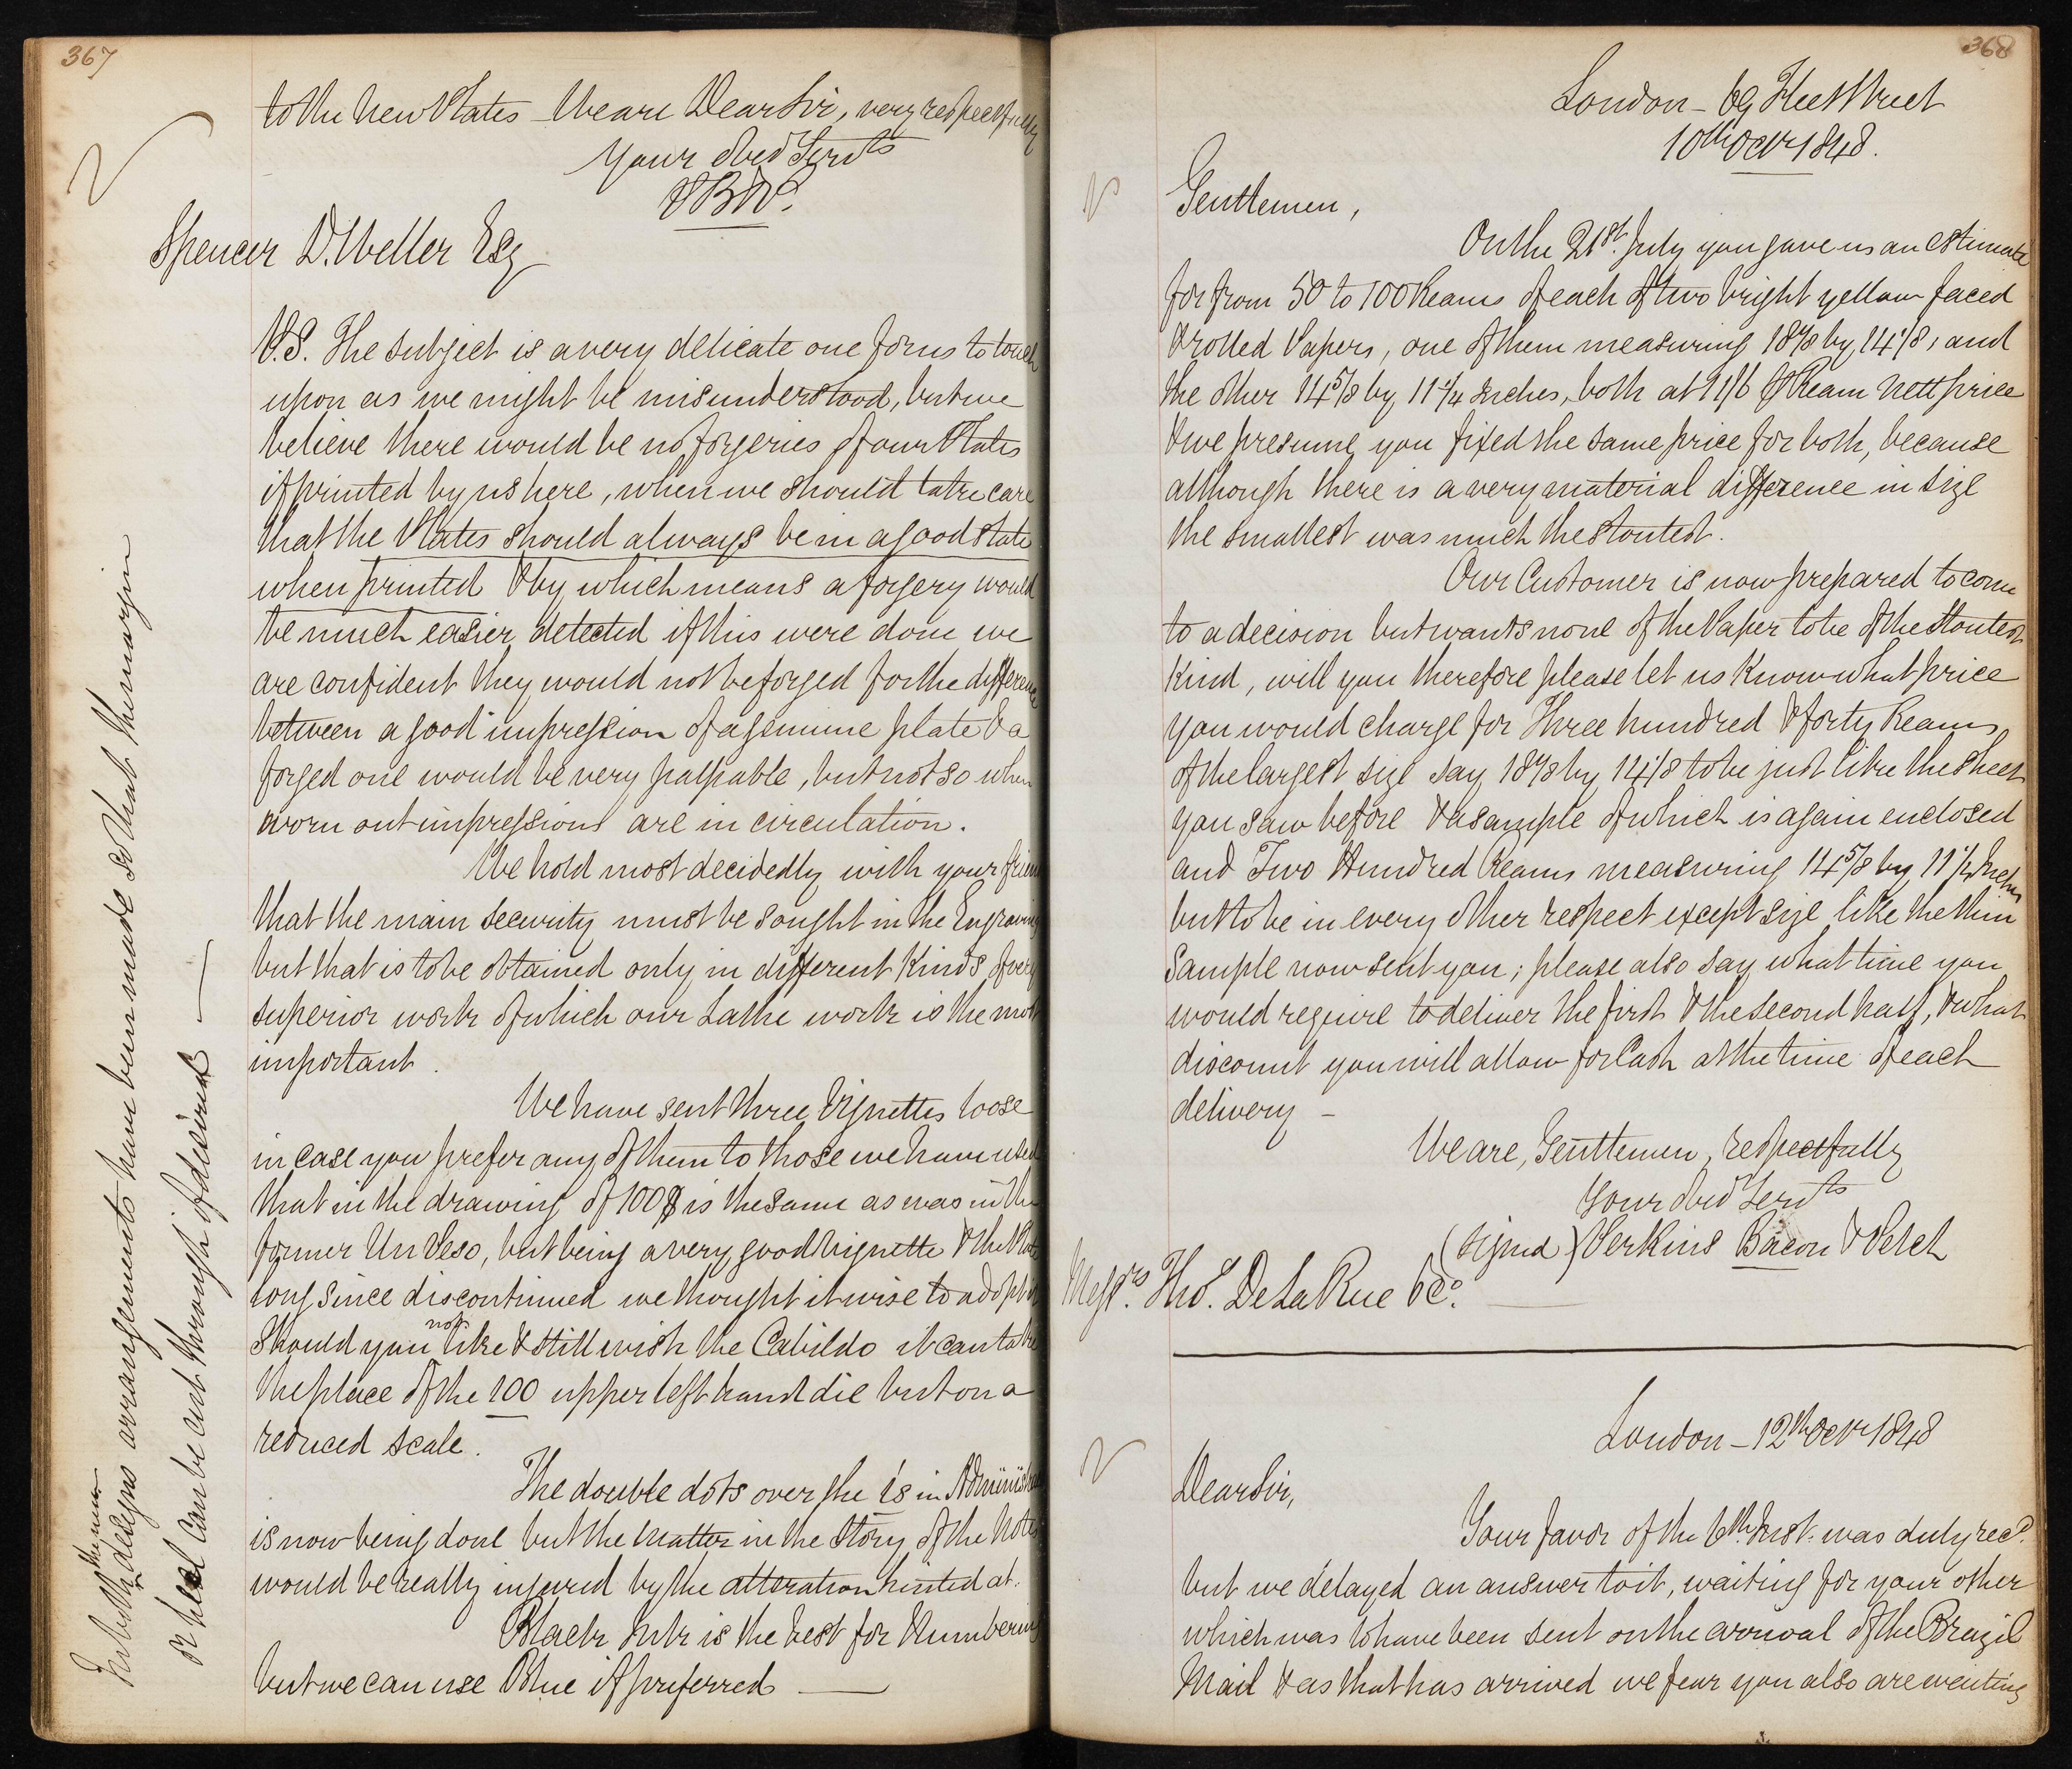 367
to the new Plates – We are Dear Sir, very respectfully
Your obed Servts
PB&P.
Spencer D. Weller Esq
P.S. The subject is a very delicate one for us to touch
upon as we might be misunderstood, but we
believe there would be no forgeries of our Plates
if printed by us here, when we should take care
that the Plates should always be in a good state
when printed & by which means a forgery would
be much easier detected if this were done we
are confident they would not be forged for the difference
between a good impression of a genuine plate & a
forged one would be very palpable, but not so when
worn out impressions are in circulation.
We hold most decidedly with your friend
that the main security must be sought in the Engraving
but that is to be obtained only in different kinds of very
superior work of which our Lathe work is the most
important.
We have sent three Vignettes loose
in case you prefer any of them to those we have used
that in the drawing of 100$ is the same as was in the
former Un Peso, but being a very good vignette & the Plate
long since discontinued we thought it wise to adopt it
Should you not like & still wish the Cabildo it can take
the place of the 100 upper left hand die but on a
reduced scale.
The double dots over the i's in Administ
is now being done but the matter in the story of the Notes
would be really injured by the alteration hinted at.
Black Ink is the best for Numbering
but we can use Blue if preferred —
In both the new designs arrangements have been made so that the margin
or heel can be cut through if desired —
368
London – 69 Fleet Street
10th Octr 1848.
Gentlemen,
On the 21st. July you gave us an estimate
for from 50 to 100 Reams of each of two bright yellow faced
& rolled Papers, one of them measuring 18 7/8 by 14 1/8, and
the other 14 5/8 by 11 1/4 Inches, both at 11/6 P Ream nett price
& we presume you fixed the same price for both, because
although there is a very material difference in size
the smallest was much the stoutest.
Our Customer is now prepared to come
to a decision but wants none of the Paper to be of the stoutest
kind, will you therefore please let us know what price
you would charge for Three hundred & forty Reams
of the largest size say 18 7/8 by 14 1/8 to be just like the sheet
you saw before & a sample of which is again enclosed
and Two Hundred Reams measuring 14 5/8 by 11 1/4 Inches
but to be in every other respect except size like the thin
Sample now sent you; please also say what time you
would require to deliver the first & the second half, & what
discount you will allow for Cash at the time of each
delivery –
We are, Gentlemen, respectfully
Your obed Servts
(signed) Perkins Bacon & Petch
Messrs. Thos. De La Rue & Co.
London – 12th Octr 1848
Dear Sir,
Your favor of the 6th Inst. was duly recd.
but we delayed an answer to it, waiting for your other
which was to have been sent on the arrival of the Brazil
Mail & as that has arrived we fear you also are waiting